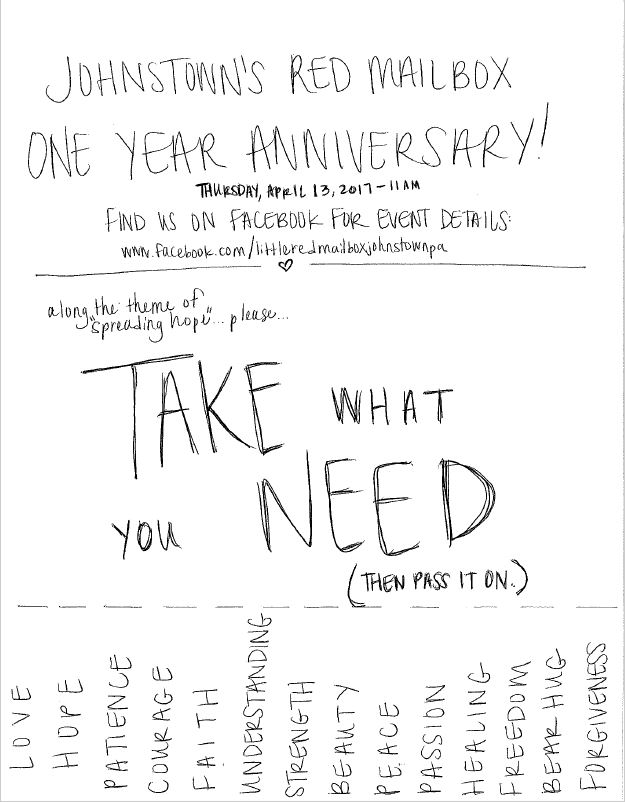 JOHNSTOWN'S RED MAILBOX
ONE YEAR ANNIVERSARY!
THURSDAY, APRIL 13, 2017 - 11AM
FIND US ON FACEBOOK FOR EVENT DETAILS:
www.facebook.com/littleredmailboxjohnstownpa
along the theme of
"spreading hope"... please...
TAKE WHAT
YOU NEED
(THEN PASS IT ON.)
LOVE
HOPE
PATIENCE
COURAGE
FAITH
UNDERSTANDING
STRENGTH
BEAUTY
PEACE
PASSION
HEALING
FREEDOM
BEAR HUG
FORGIVENESS